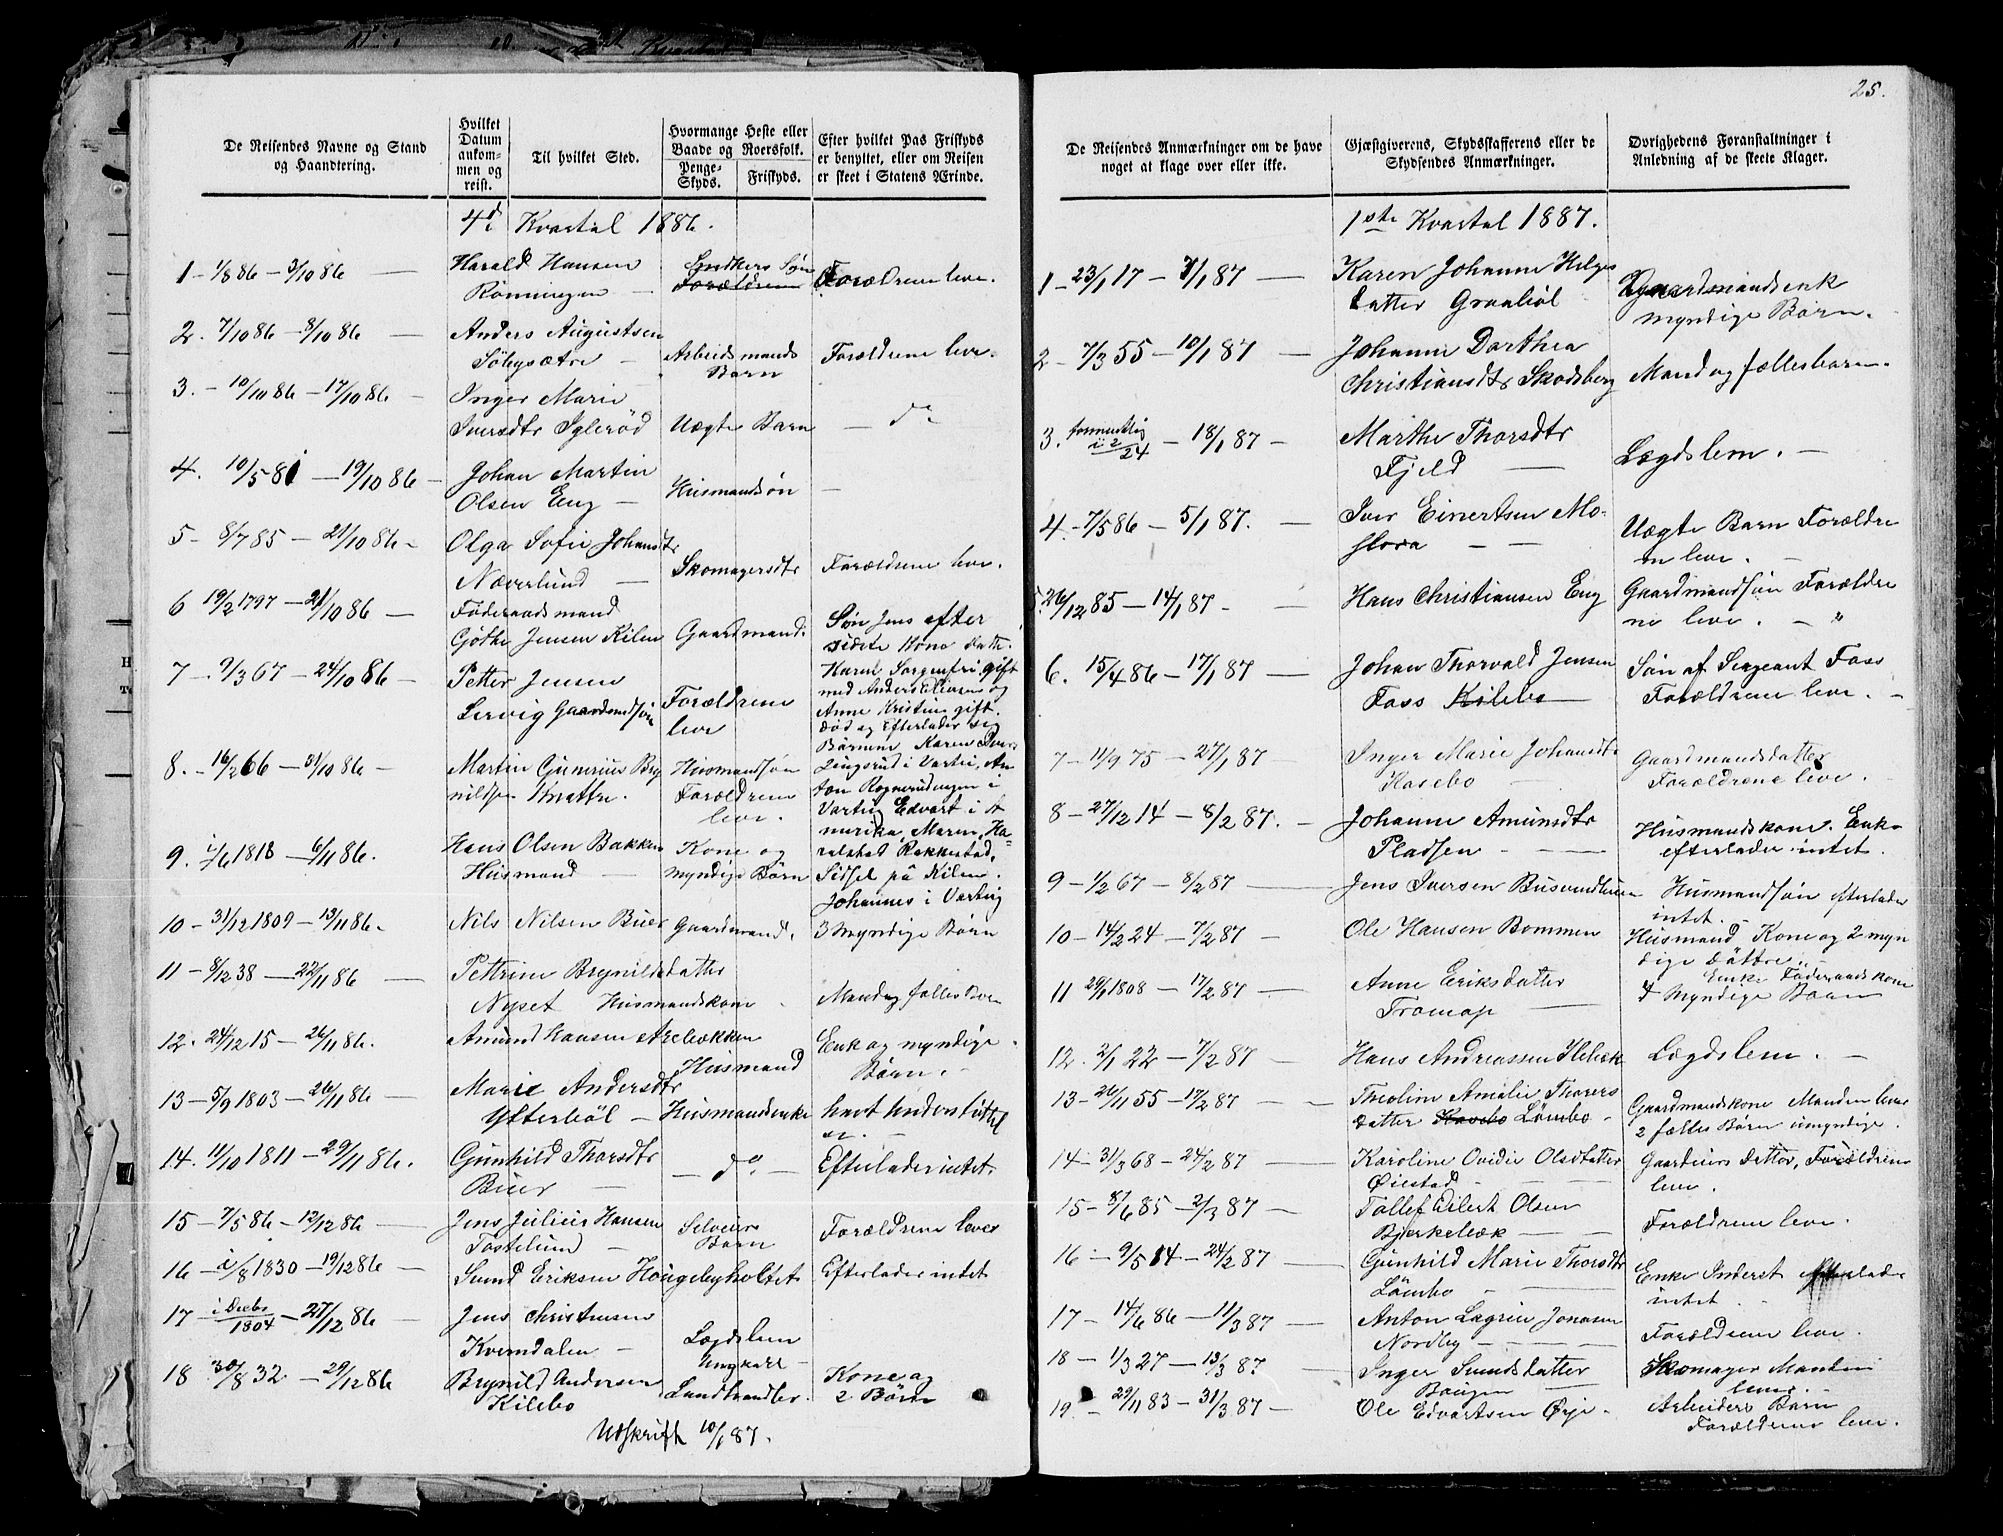 25.
De Reisendes Navne og Stand
og Haandtering.
Hvilket
Datum
ankom-
men og
reist.
Til hvilket Sted.
Hvormange Heste eller
Baade og Roersfolk.
Penge-
Skyds.
Friskyds.
Efter hvilket Pas Friskyds
er benyttet, eller om Reisen
er skeet i Statens Ærinde.
4de Kvartal 1886.
1 - 1/8 86 - 3/10 86 - Harald Hansen
Rönningen - Søn Forældrene Forældrene leve.
2. 7/10 86 - 8/10 86 - Anders Augustsen
Söbysætre - Arbeidsmands Barn Forældrene leve.
3. - 10/10 86 - 17/10 86 - Inger Marie
Iversdtr Igleröd Uægte Barn - do
4. 10/5 81 - 19/10 86 - Johan Martin
Olsen Eng - Husmandsön -
5 - 8/7 85 - 21/10 86 - Olga Sofie Johansdtr
Næverlund - Skomagersdtr Forældrene leve.
6 19/2 1797 - 21/10 86 - Föderaadsmand
Gjøthe Jensen Kilen Gaardmand.
Søn Jens efter
sidete Kone Kath.
Karen Sorgenfri gift
med Anders Eliesen og
Anne Kristine gift.
død og Efterlader sig
Börnene Karen
i Vartei, An-
ton Rognerudengen i
Varteig Edvart i A-
merika, Maren, Ha-
ralstad Rakkestad,
Sidsel på Kilen.
Johannes i Varteig
7 - 9/3 67 - 24/10 86 - Petter Jensen
Lervig Gaardmdsön Forældrene
leve
8. - 16/2 66 - 31/10 86 - Martin Gunerius Bry
nildsen Knatte. Husmandsön
Forældrene
leve.
9. i/6 1818 - 6/11 86. Hans Olsen Bakken
Husmand - Kone og
myndige Börn
10 - 31/12 1809 - 13/11 86. Nils Nilsen Buer Gaardmand. 3 Myndige Börn
11 - 8/12 38 - 22/11 86 - Pettrine Brynildsdatter
Nyset Husmandskone - Mand og fælles Börn
12. 24/12 15 - 26/11 86. Amund Hansen Arebækken
Husmand Enke og myndige
Börn. -
13 - 5/9 1803 - 26/11 86 - Marie Andersdtr
Ytterböl - Husmandsenke havt Understöttel
se. -
14. 11/10 1811 - 29/11 86. Gunhild Thorsdtr
Buer - - do - Efterlader intet.
15 - 7/5 86 - 12/12 86 - Jens Julius Hansen
Tostelund - Selveier
Barn Forældrene lever
16 - i/8 1830 - 19/12 86 - Svend Eriksen Haugebyholtet Efterlader intet
17 i Decbr/1804 - 27/12 86 - Jens Christensen
Kverndalen - Lægdslem
Ungkarl -
18 30/8 32 - 29/12 86 Brynild Andersen
Kilebo Landhandler. Kone og
2 Börn
Udskrift 10/1 87.
De Reisendes Anmærkninger om de have
noget at klage over eller ikke.
Gjæstgiverens, Skydsskafferens eller de
Skydsendes Anmærkninger.
Øvrighedens Foranstaltninger i
Anledning af de skete Klager.
1ste Kvartal 1887.
1 - 23/1 17 - 3/1 87 - Karen Johanne Helges
datter Graaböl Gaardmandsenk
myndige Börn.
2 - 7/3 55 - 10/1 87 - Johanne Dorthea
Christiansdtr Skodsberg Mand og fælles barn.
3. formentlig i 2/24 - 18/1 87 - Marthe Thorsdtr
Fjeld - Lægdslem. -
4. - 7/5 86 - 5/1 87. - Iver Einertsen Mo-
slora - - Uægte Barn Forældre
n leve. -
5. 26/12 85 - 14/1 87 - - Hans Christiansen Eng Gaardmandsön Forældre
ne leve. - "
6. 15/4 86 - 17/1 87 - Johan Thorvald Jensen
Foss Kilebo Sön af Sergeant Foss
Forældrene leve. -
7 - 11/9 75 - 27/1 87 Inger Marie Johansdtr
Kasebo - Gaardmandsdatter
Forældrene leve. -
8 - 27/12 14 - 8/2 87. - Johanne Amundsdtr
Pladsen - - - Husmandskone. Enke
efterlader intet.
9 - 1/2 67 - 8/2 87 - Jens Iversen Husmandsön efterlader
intet. -
10 - 14/2 24 - 7/2 87 - Ole Hansen Bommen Husmand Kone og 2 myn
dige Döttre.
11 29/1 1808 - 17/2 87 - Anne Eriksdatter
Tromop - Enke Föderaadskone
4 Myndige Börn
12. 2/1 22 - 7/2 87 - Hans Andreassen Ilebæk Lægdslem. -
13 - 26/11 55 - 17/2 87 - - Theoline Amalie Thorers
datter Kasebo Lömbo - Gaardmandskone Manden lever
2 fælles Börn umyndige.
14 - 31/3 68 - 24/2 87 - Karoline Ovidie Olsdatter
Öiestad - - Gaardeiers dotter, Forældrene
leve.
15 - 8/6 85 - 2/3 87 - Tollef Eilert Olsen
Bjerkebæk - - Forældrene leve.
16 - 9/5 14 - 24/2 87 - Gunhild Marie Thorsdtr
Lömbo - - Enke Inderst efterlader
intet -
17 - 14/6 86 - 11/3 87 - Anton Lagrin Jonasen
Nordby - - - Forældrene leve.
18 - 1/3 27 - 13/3 87 - Inger Svendsdatter
Baugen - Skomager Manden
lever. -
19 - 29/11 83 - 31/3 87 - Ole Edvartsen Örje - Arbeiders Barn
Forældrene leve.